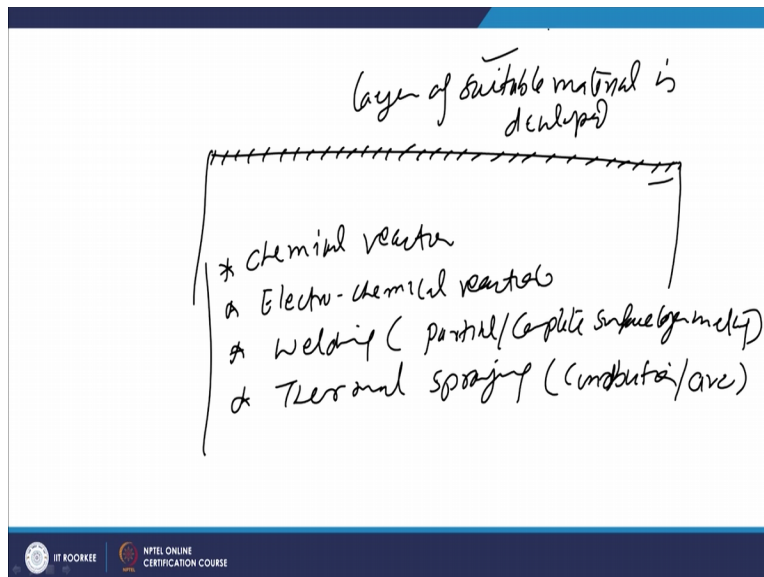 layer of suitable material is
developed
* Chemical reaction
* Electro-chemical reactions
* Welding ( partial/Complete surface layer melt)
* Thermal spraying (Combustion/arc)
IIT ROORKEE
NPTEL ONLINE
CERTIFICATION COURSE
NPTEL